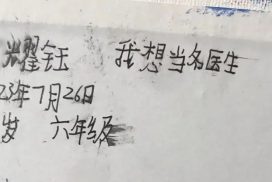 耀钰 我想当名医生
23年7月26日
岁 六年级